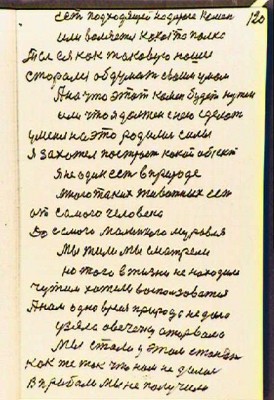 120
есть подходящей на дороге камен
или волается какой то полка
То ся как таковую нашел
старалс обдумат своим умом
А на что этот камен будет нужен
или что я должен с него сделать
у меня на это родилис силы
Я захотел построит какой объект
Я не один ест в природе
много таких животных ест
от самого человека
До самого маленкого муровья
Мы жили мы сматрели
но того в жизни не находили
чужим хотели воспользоватся
А нам одно время природа не дало
узяла овечку аторвала
Мы стали у этом
как же так что нам не дали
В прибали мы не получило